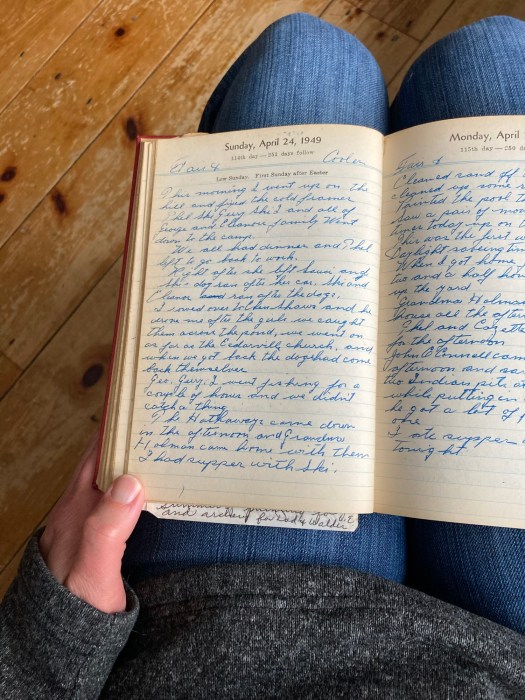 Sunday, April 24, 1949
114th day — 251 days follow
Fair & Cooler
Low Sunday. First Sunday after Easter
This morning I went up on the
hill and fixed the cold frames
Phil Ski Gery She I and all of
George and Eleanor family Went
down to the camp.
We all had dinner and Phil
left to go back to work.
Right after she left and
Ski's dog ran after her car. Ski and
Eleanor ran after the dogs.
I rowed over to the and he
drove me after the girls we caught
them across the pond, we went on
as far as the Cedarville church, and
when we got back the dogs had come
back themselves
Geo, Gery, I went fishing for a
couple of hours and we didn't
catch a thing.
The Hathaways came down
in the afternoon and Grandma
Holman came home with them
I had supper with Ski.
and archery for Dad & Walder
Monday, April
115th day — 250 d
Fair &
Cleaned
cleaned up some
Painted the pool t
Saw a pair of
times today up on
This was the first w
Daylight saving tim
When I got home
two and a half ho
up the yard
Grandma Holman
house all the after
Phil and
for the afternoon
John O'Connell cam
afternoon and sa
two Indian
while putting in
he got a lot of f
one
I ate supper
tonight